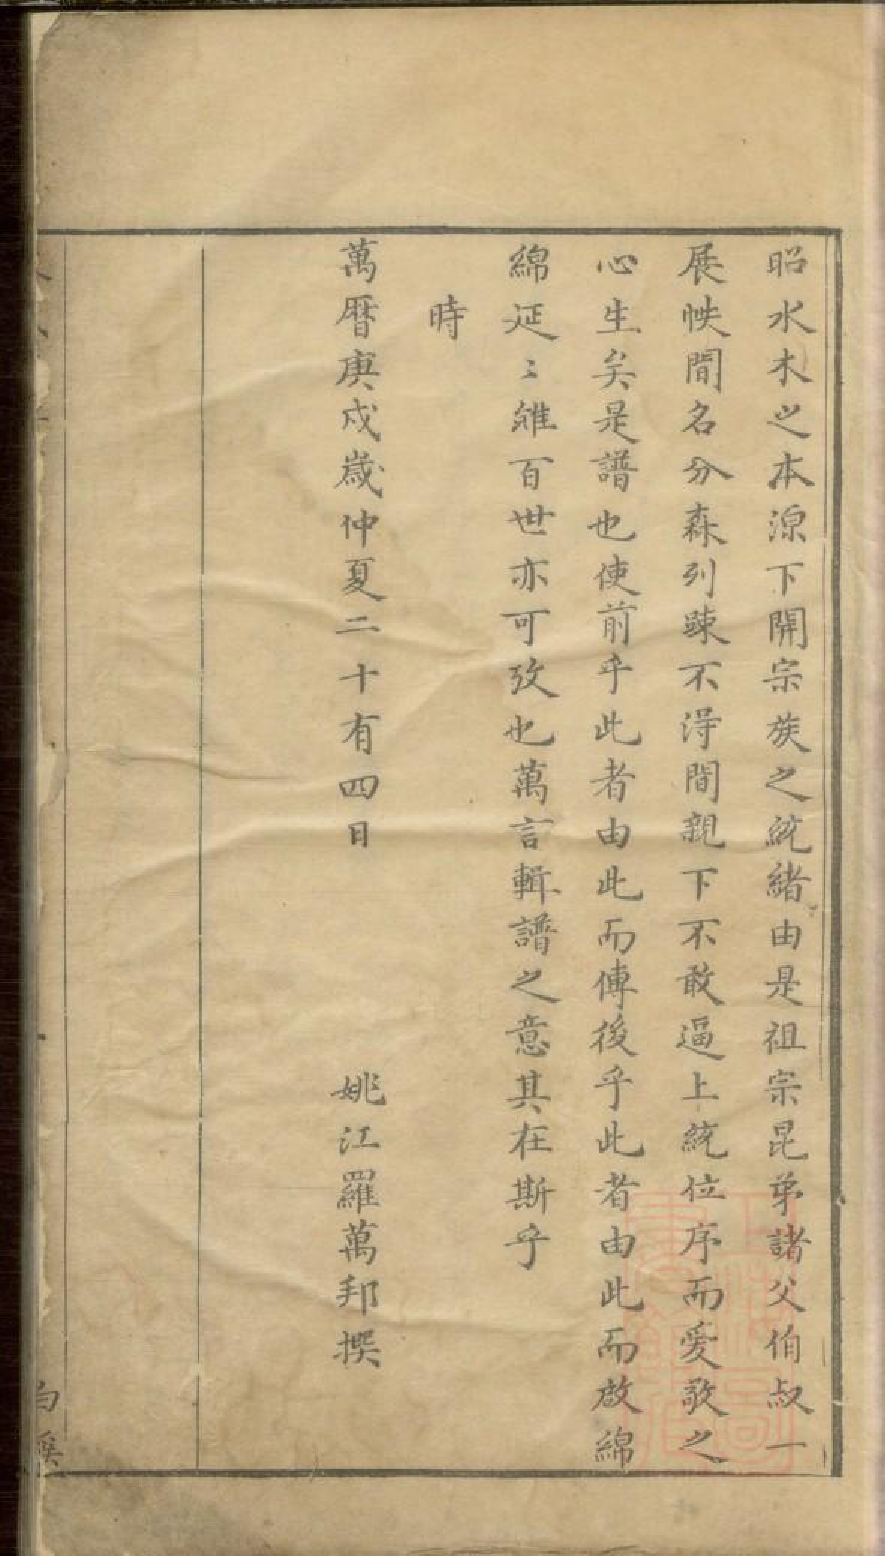 昭水木之本源下開宗族之統緒由是祖宗昆弟諸父伯叔一
展帙間名分森列踈不淂間親下不敢逼上統位序而愛敬之
心生矣是譜也使前乎此者由此而傳後乎此者由此而啟綿
綿延〻維百世亦可攷也萬言輯譜之意其在斯乎
時
萬曆庚戍歲仲夏二十有四日 姚江羅萬邦撰